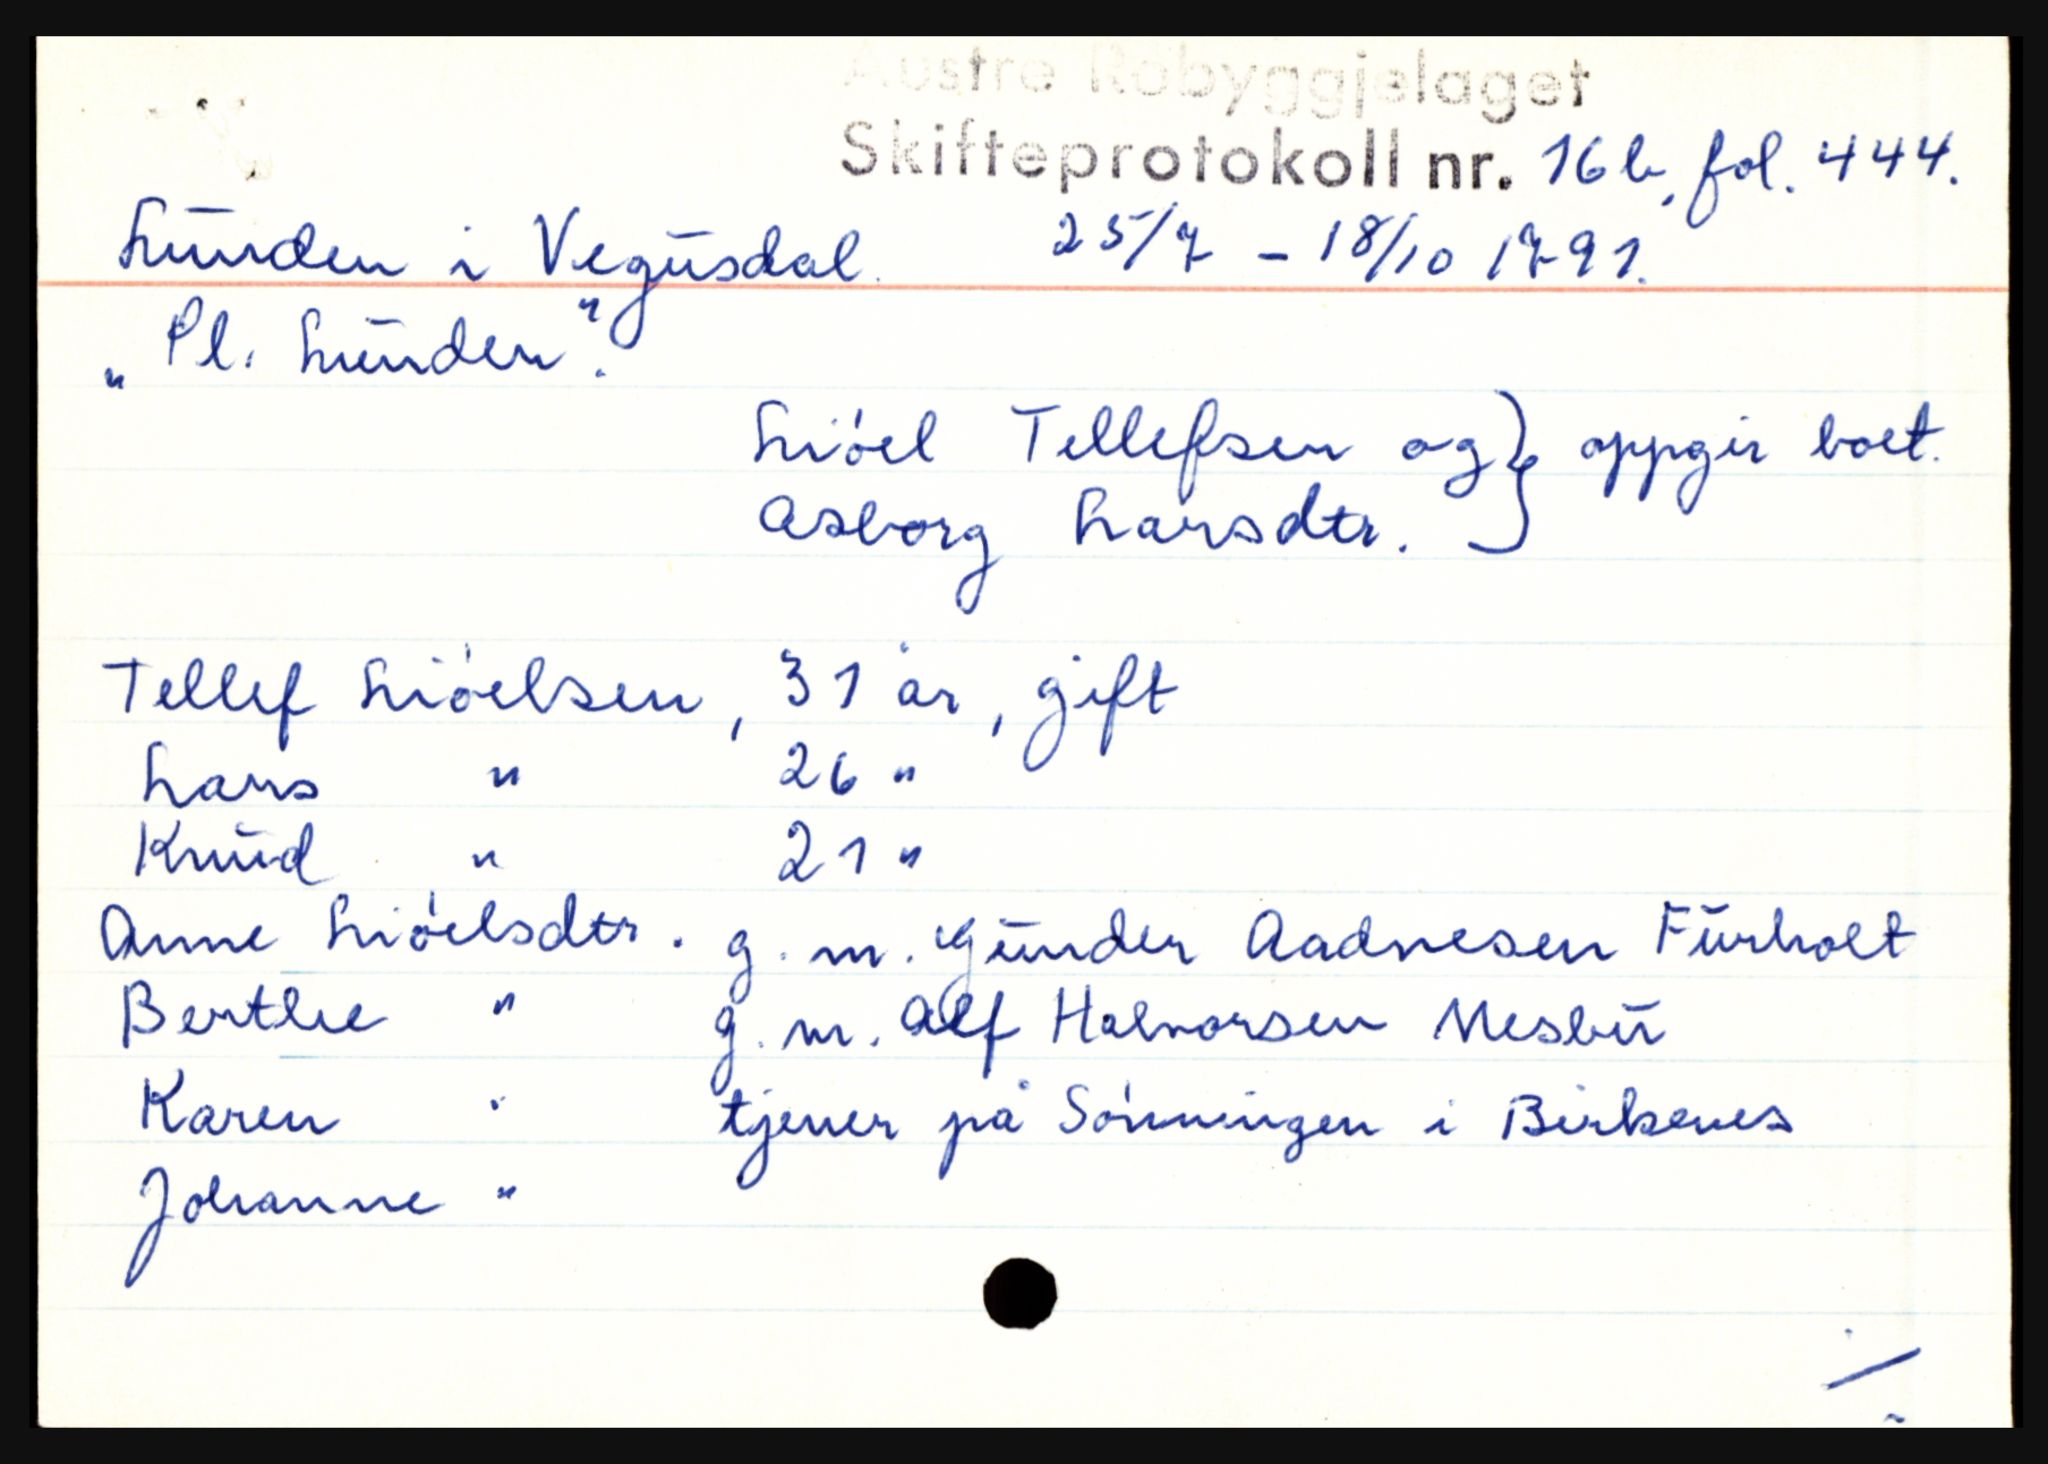 Austre Robyggjelaget
Skifteprotokoll nr. 16b, fol. 444.
Lunden i Vegusdal. 25/7 - 18/10 1791.
"Pl. Lunden".
Liöel Tellefsen og } oppgir boet.
Asborg Larsdtr.
Tellef Liöelsen, 31 år, gift
Lars " 26 "
Knud " 21 "
Anne Liöelsdtr. g. m. Gunder Aadnesen Furholt
Berthe " g. m. Alf Halvorsen Mesbu
Karen " tjener på Sönningen i Birkenes
Johanne "